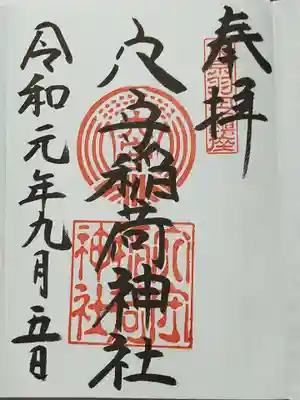 奉拝
穴守稲荷神社
令和元年九月五日
穴守稲荷神社